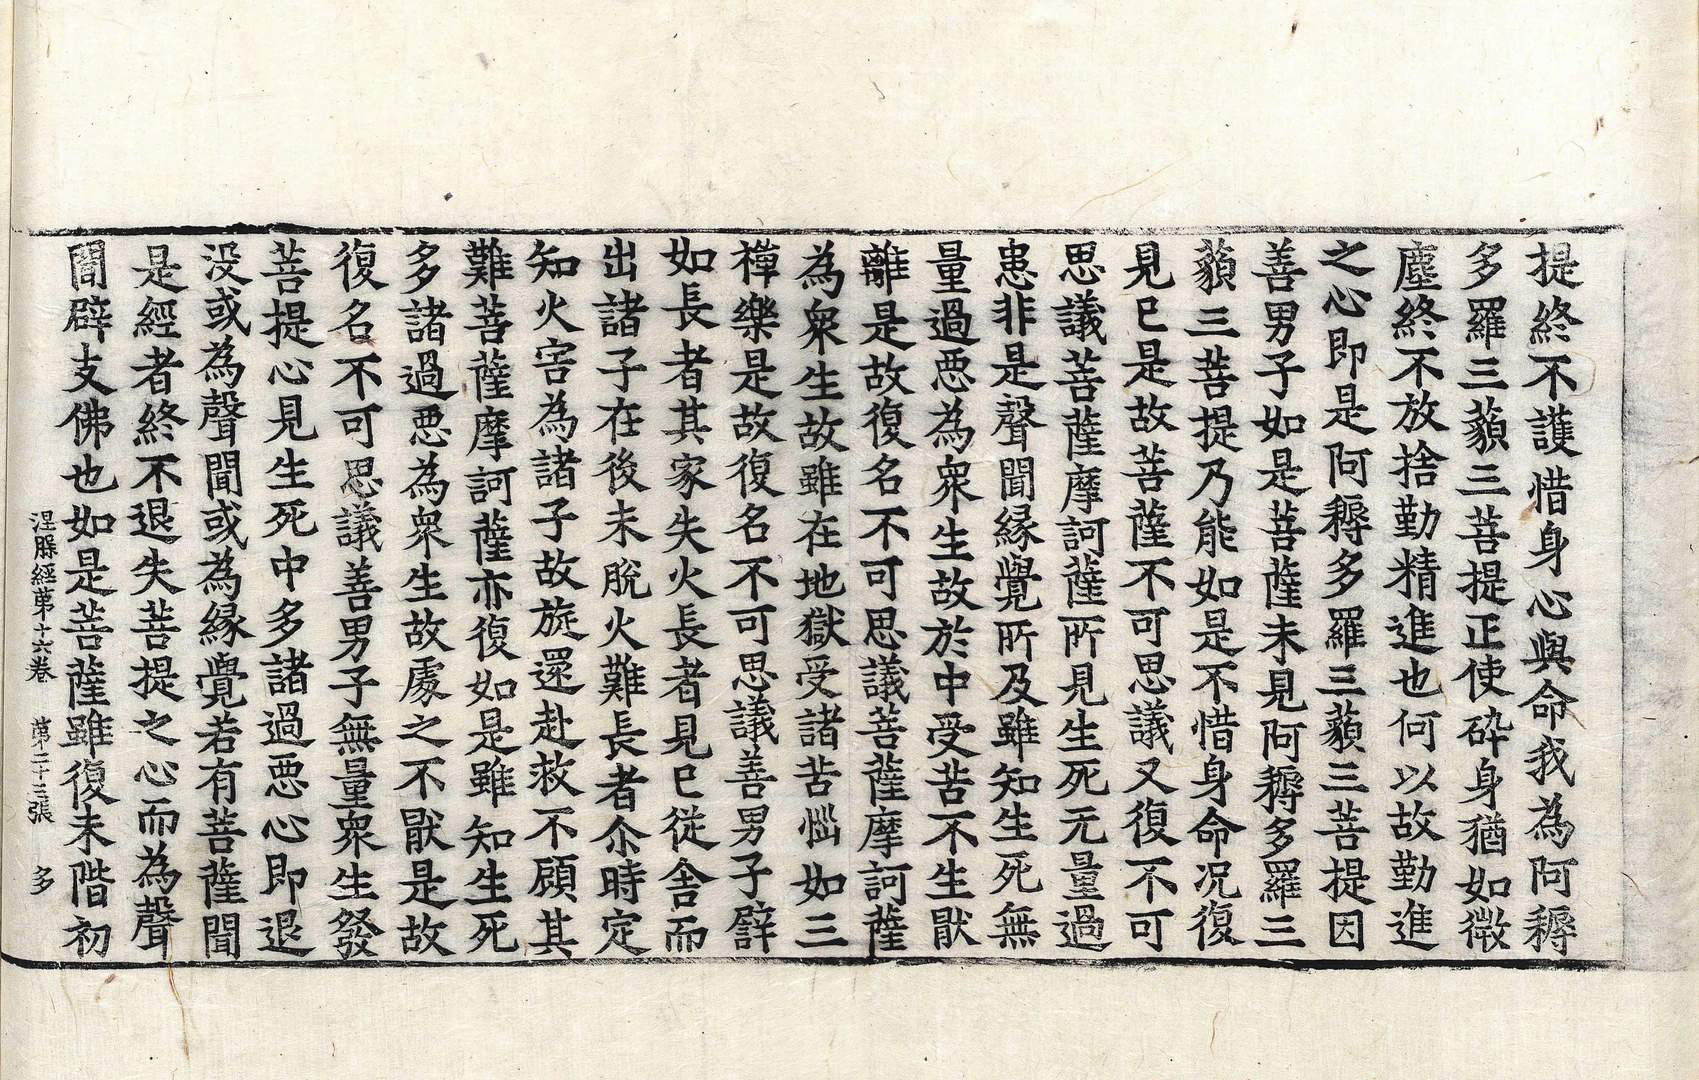 提終不護惜身心與命我為阿耨
多羅三藐三菩提正使碎身猶如微
塵終不放捨勤精進也何以故勤進
之心即是阿耨多羅三藐三菩提因
善男子如是菩薩未見阿耨多羅三
藐三菩提乃能如是不惜身命况復
見已是故菩薩不可思議又復不可
思議菩薩摩訶薩所見生死无量過
患非是聲聞緣覺所及雖知生死無
量過惡為衆生故於中受苦不生猒
離是故復名不可思議菩薩摩訶薩
為衆生故雖在地獄受諸苦惱如三
禪樂是故復名不可思議善男子譬
如長者其家失火長者見已從舍而
出諸子在後未脫火難長者尒時定
知火害為諸子故旋還赴救不顧其
難菩薩摩訶薩亦復如是雖知生死
多諸過惡為衆生故處之不猒是故
復名不可思議善男子無量衆生發
菩提心見生死中多諸過惡心即退
没或為聲聞或為緣覺若有菩薩聞
是經者終不退失菩提之心而為聲
聞辟支佛也如是菩薩雖復未階初
涅槃經第十六卷 第二十三張 多